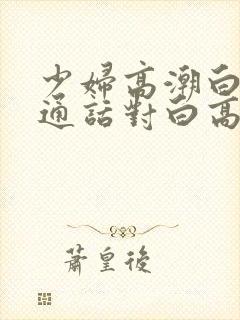 少婦高潮白
通話對白高
蕭皇後